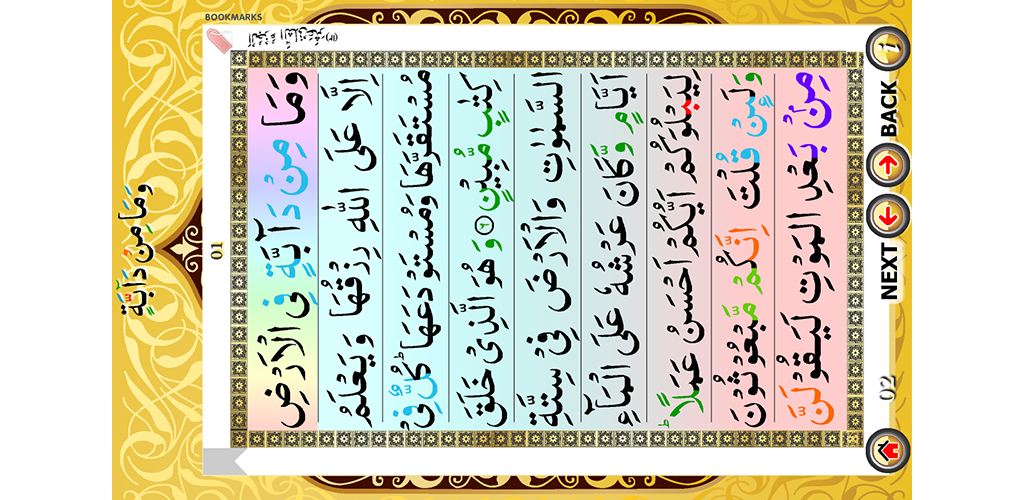 BOOKMARKS
وَمَا مِنْ دَآبَّةٍ
01
وَمَا مِنْ دَآبَّةٍ فِى الْاَرْضِ
اِلَّا عَلَى اللّٰهِ رِزْقُهَا وَيَعْلَمُ
مُسْتَقَرَّهَا وَمُسْتَوْدَعَهَا ؕ كُلٌّ فِىْ
كِتٰبٍ مُّبِيْنٍ ۶ وَهُوَ الَّذِىْ خَلَقَ
السَّمٰوٰتِ وَالْاَرْضَ فِىْ سِتَّةِ
اَيَّامٍ وَّكَانَ عَرْشُهٗ عَلَى الْمَآءِ
لِيَبْلُوَكُمْ اَيُّكُمْ اَحْسَنُ عَمَلًا ؕ
وَلَئِنْ قُلْتَ اِنَّكُمْ مَّبْعُوْثُوْنَ
مِنْۢ بَعْدِ الْمَوْتِ لَيَقُوْلَنَّ
NEXT BACK i
02